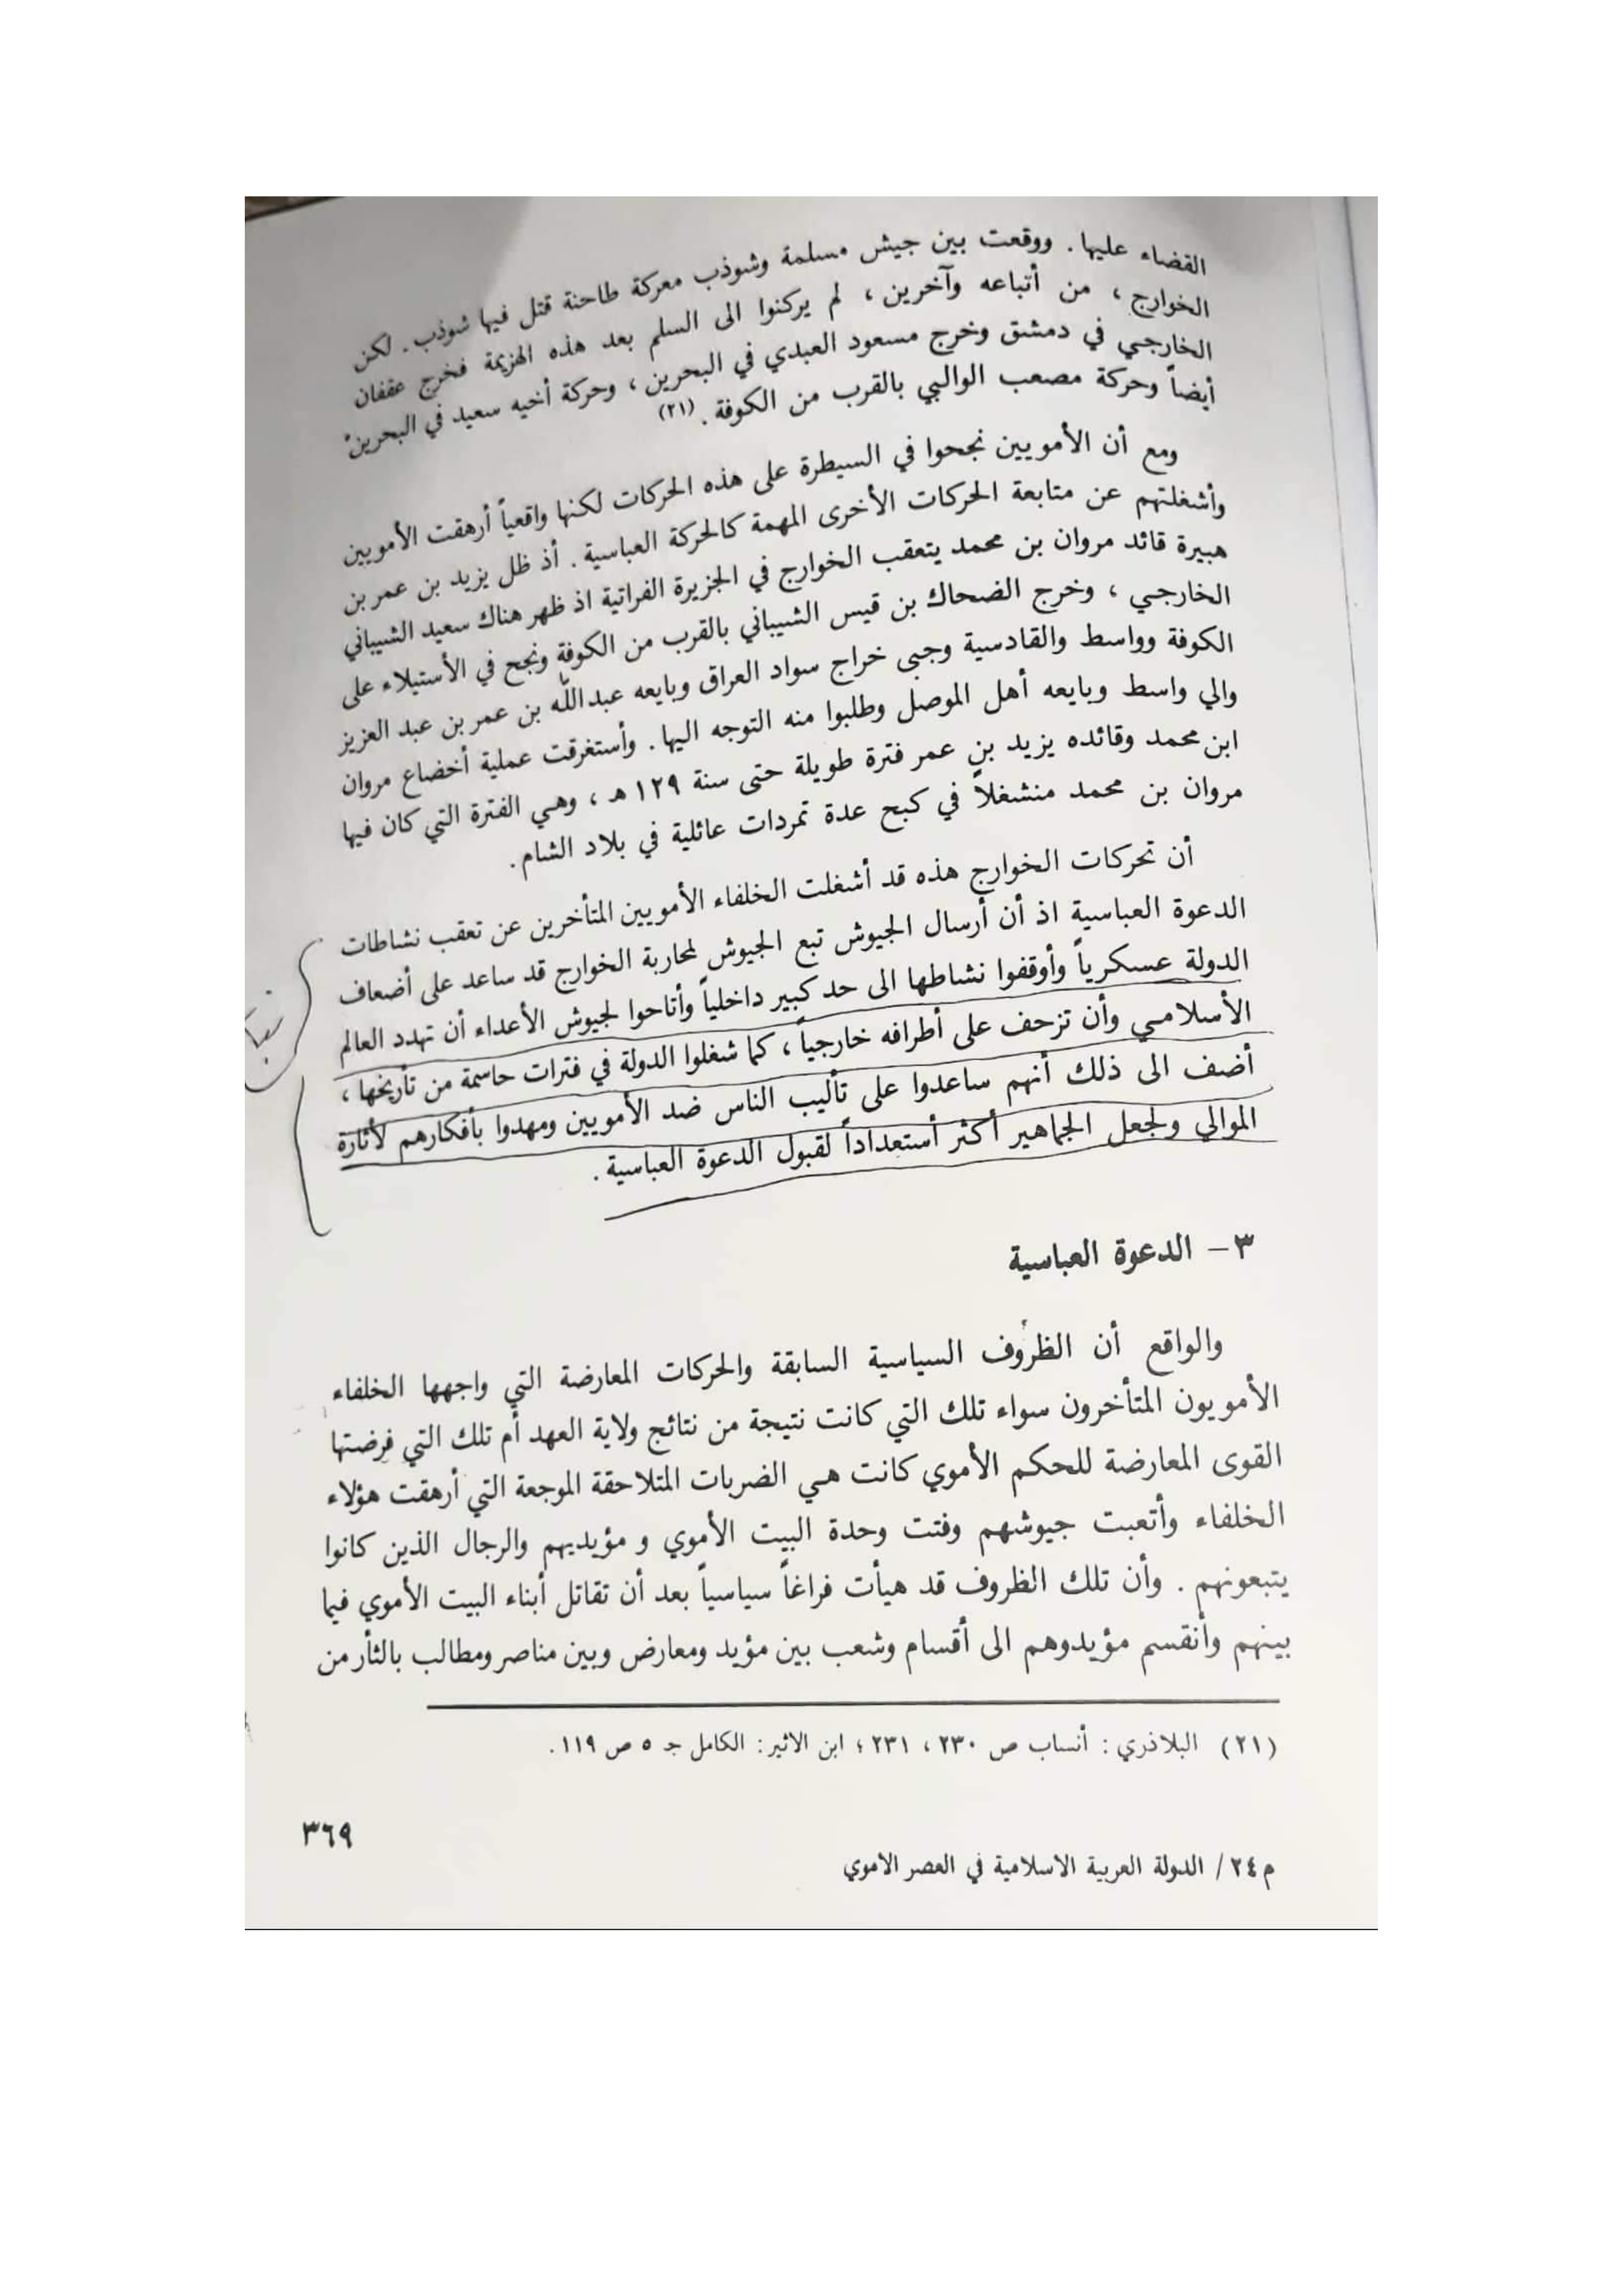 القضاء عليها . ووقعت بين جيش مسلمة وشوذب معركة طاحنة قتل فيها شوذب . لكن
الخوارج ، من أتباعه وآخرين ، لم يركنوا الى السلم بعد هذه الهزيمة فخرج عقفان
الخارجي في دمشق وخرج مسعود العبدي في البحرين ، وحركة أخيه سعيد في البحرين
أيضاً وحركة مصعب الوالبي بالقرب من الكوفة . (٢١)
ومع أن الأمويين نجحوا في السيطرة على هذه الحركات لكنها واقعياً أرهقت الأمويين
وأشغلتهم عن متابعة الحركات الأخرى المهمة كالحركة العباسية . أذ ظل يزيد بن عمر بن
هبيرة قائد مروان بن محمد يتعقب الخوارج في الجزيرة الفراتية اذ ظهر هناك سعيد الشيباني
الخارجي ، وخرج الضحاك بن قيس الشيباني بالقرب من الكوفة ونجح في الأستيلاء على
الكوفة وواسط والقادسية وجبى خراج سواد العراق وبايعه عبدالله بن عمر بن عبد العزيز
والي واسط وبايعه أهل الموصل وطلبوا منه التوجه اليها . وأستغرقت عملية أخضاع مروان
ابن محمد وقائده يزيد بن عمر فترة طويلة حتى سنة ١٢٩ هـ ، وهي الفترة التي كان فيها
مروان بن محمد منشغلاً في كبح عدة تمردات عائلية في بلاد الشام .
أن تحركات الخوارج هذه قد أشغلت الخلفاء الأمويين المتأخرين عن تعقب نشاطات
الدعوة العباسية اذ أن أرسال الجيوش تبع الجيوش لمحاربة الخوارج قد ساعد على أضعاف
الدولة عسكرياً وأوقفوا نشاطها الى حد كبير داخلياً وأتاحوا لجيوش الأعداء أن تهدد العالم
الأسلامي وأن تزحف على أطرافه خارجياً ، كما شغلوا الدولة في فترات حاسمة من تأريخها ،
أضف الى ذلك أنهم ساعدوا على تأليب الناس ضد الأمويين ومهدوا بأفكارهم لأثارة
الموالي ولجعل الجماهير أكثر أستعداداً لقبول الدعوة العباسية .
٣ – الدعوة العباسية
والواقع أن الظروف السياسية السابقة والحركات المعارضة التي واجهها الخلفاء
الأمويون المتأخرون سواء تلك التي كانت نتيجة من نتائج ولاية العهد أم تلك التي فرضتها
القوى المعارضة للحكم الأموي كانت هي الضربات المتلاحقة الموجعة التي أرهقت هؤلاء
الخلفاء وأتعبت جيوشهم وفتت وحدة البيت الأموي و مؤيديهم والرجال الذين كانوا
يتبعونهم . وأن تلك الظروف قد هيأت فراغاً سياسياً بعد أن تقاتل أبناء البيت الأموي فيما
بينهم وأنقسم مؤيدوهم الى أقسام وشعب بين مؤيد ومعارض وبين مناصر ومطالب بالثأر من
(٢١) البلاذري : أنساب ص ٢٣٠ ، ٢٣١ ؛ ابن الاثير : الكامل جـ ٥ ص ١١٩ .
٣٦٩
م٢٤ / الدولة العربية الاسلامية في العصر الاموي